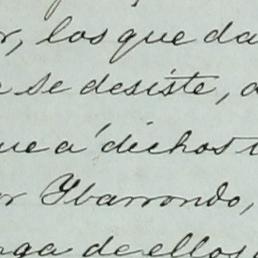 r, los que da
e se desiste, a
ue a' dichos t
or Ybarrondo,
nga de ellos